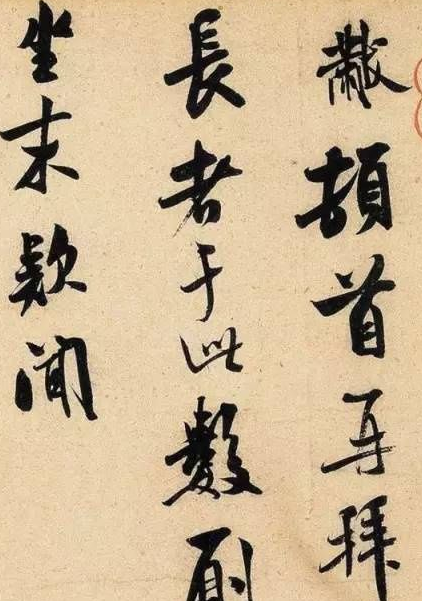 黻頓首再拜
長者于此數厠
坐末欵聞